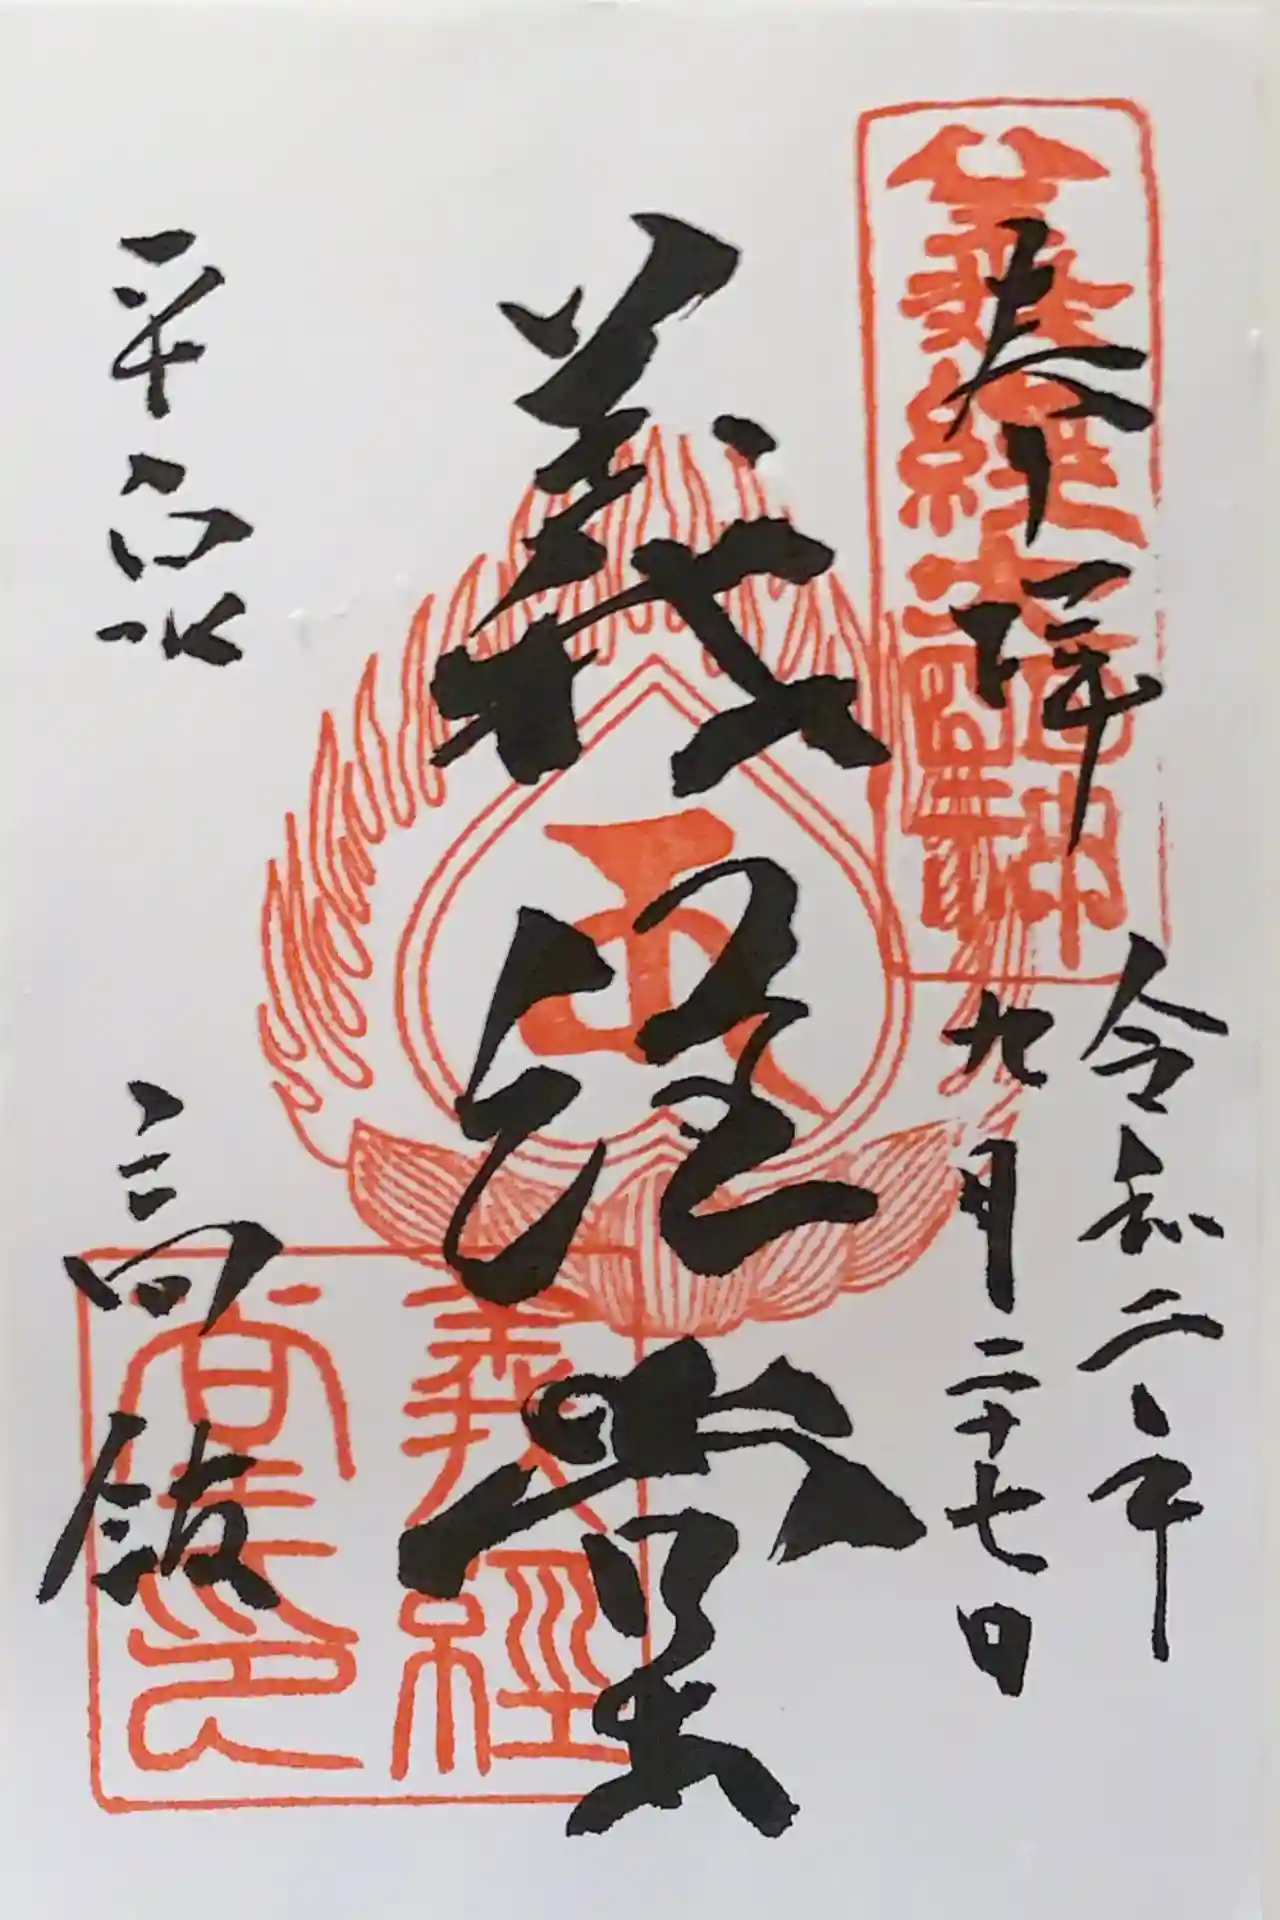 奉拝
義經大明神
令和二年
九月二十七日
義经堂
義經
堂印
平泉
高舘